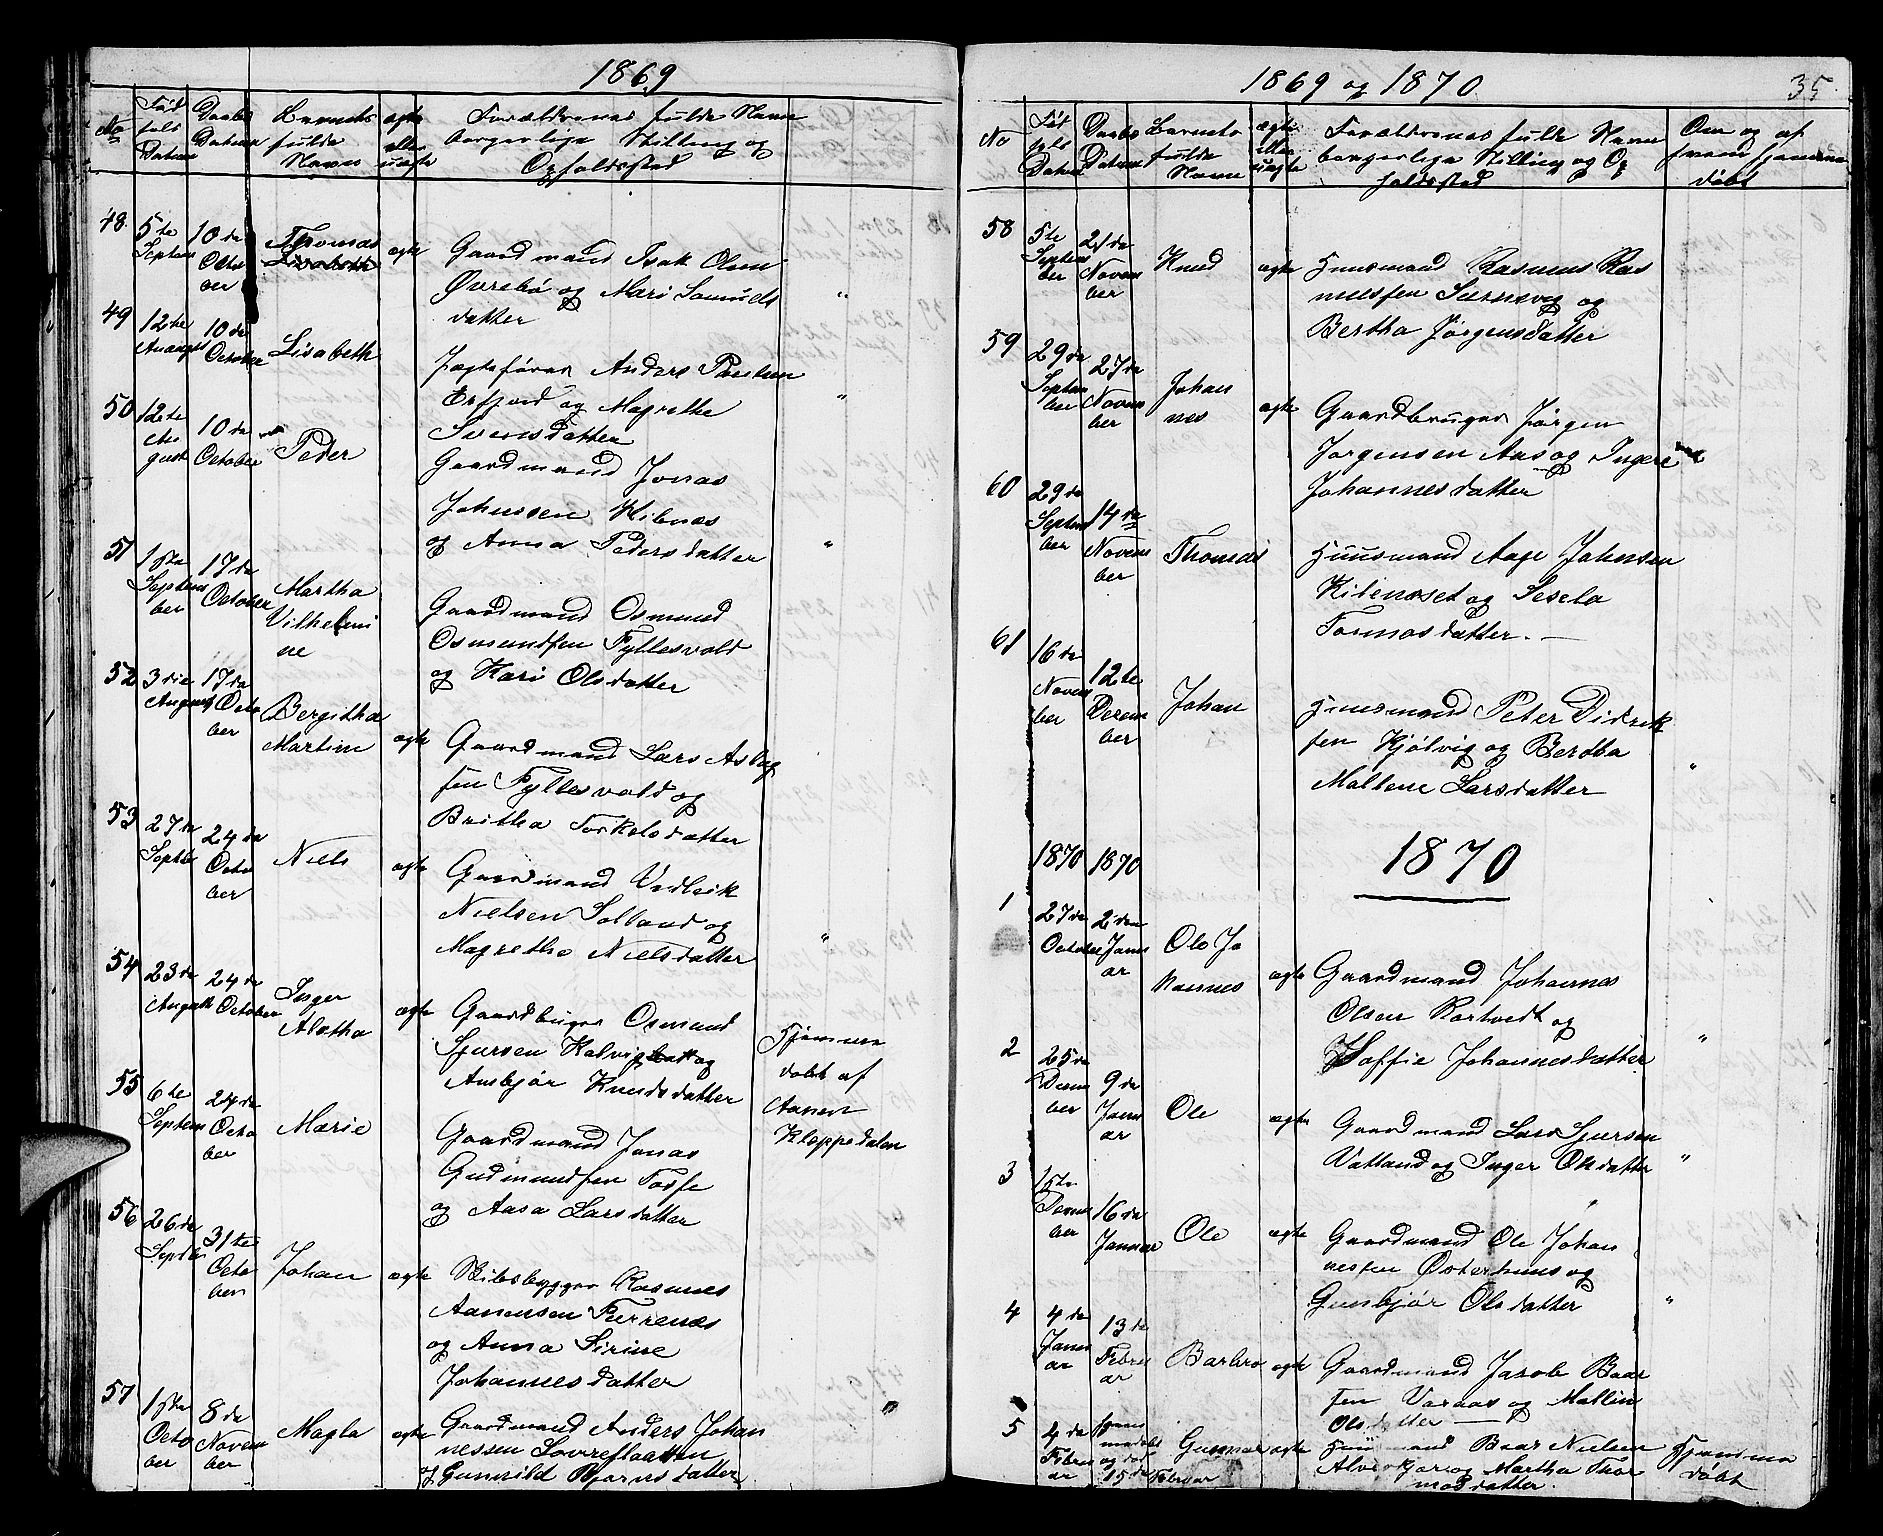 1869
No
Fød
sels
Datum
Daabs
Datum
Barnets
fulde
Navn
ægte
eller
uægte
Forældrenes fulde Navn
borgerlige Stilling og
Opholdssted
48. 5te Septem 10de Octo ber Thomas ægte Gaardmand Isak Olsen
Øvrebø og Mari
datter "
49 12te 10de October Lisabeth Jægtefører Anders Paulsen
Erfjord og Magrethe "
Sirensdatter
50 12te Au gust 10de October Peder Gaardmand Jonas
Johnssen Hibnæs
og Anna Pedersdatter "
51 1ste Septem ber 17de October Martha Vilhelmi ne Gaardmand Osmund
Osmundsen Tyttesvold
og Kari Olsdatter
52 3die August 17de Octo ber Bergitha Martine ægte Gaardmand Lars Aslag
sen Tyttesvold og
Britha Torkelsdatter
53 27de Septbr 24de Octo ber Niels ægte Gaardmand
Nielsen Solland og
Magretha Nielsdatter "
54 23de August 24de October Inger Alætha ægte Gaardbruger Osmund
Sjursen Kalvig og
Ansbjør Knudsdatter
Hjemme
døbt af
Aanen
Kloppedalen
55 6te Septem 24de Octo ber Marie Gaardmand Jonas
Gudmundsen Tosse
og Aasa Larsdatter
56 26de Septbr 31te Octo ber Johan ægte Bådsbygger Rasmus
Aanensen
og Anna Sirine
Johannesdatter
57 1ste Octo ber 8de Novem ber Magla ægte Gaardmand Anders Johan "
nessen Lovreflaaten
og Gunnild Bjørnsdatter
1869 og 1870
35
No
Fød
sels
Datum
Daabs
Datum
Barnets
fulde
Navn
ægte
eller
uægte
Forældrenes fulde Navn
borgerlige Stilling og Op
holdssted
Om og af
hvem hjemme
døbt
58 5te Septem ber 21de Novem ber Knud ægte Huusmand Rasmus Ras
mussen Særsvig og
Bertha Jørgensdatter
59 29de Septem ber 27de Novem ber Johan nes ægte Gaardbruger Jørgen
Jørgensen Aas og Ingere
Johannesdatter
60 29de Septem ber 14de Novem ber Thomas Huusmand Aage Johnsen
Hibnæset og Sesela
Tormosdatter. —
61 16de Novem ber 12te Decem ber Johan Huusmand Peter Didrik
sen Hjølvig og Bertha
Maltene Larsdatter "
1870 1870 1870
1 27de October 2den Janu ar Ole Jo hannes ægte Gaardmand Johannes
Olsen Rortvedt og
Soffie Johannesdatter "
2 25de Decem ber 9de Janu ar Ole ægte Gaardmand Lars Sjursen
Vatland og Inger Olsdatter "
3 1ste Decem ber 16de Januar Ole ægte Gaardmand Ole Johan
nessen Østerhuus og
Gunbjør Olsdatter "
4 4de Janu ar 13de Febru ar Barbro ægte Gaardmand Jacob Baar
sen Varaas og Mallin
Olsdatter —
5 4de Febru ar hjemmedøbt og død 15de Februar Gunnar ægte Huusmand Baar Nielsen
og Martha Thor
modsdatter.
Hjemme
døbt